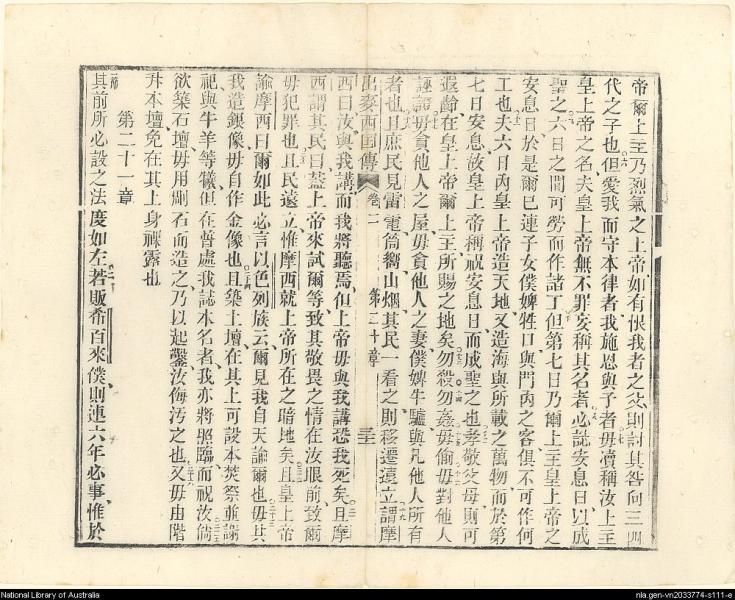 帝爾上主乃烈氣之上帝如有恨我者之父則討其咎向三四
代之子也但愛我而守本律者我施恩與予者毋瀆稱汝上主
皇上帝之名夫皇上帝無不罪妄稱其名者必誌安息日以成
聖之六日之間可勞而作諸工但第七日乃爾上主皇上帝之
安息日於是爾巳連子女僕婢牲口與門內之客俱不可作何
工也夫六日內皇上帝造天地又造海與所載之萬物而於第
七日安息故皇上帝稱祝安息日而成聖之也孝敬父母則可
遐齡在皇上帝爾上主所賜之地矣勿殺勿姦毋偷毋對他人
誣證毋貪他人之屋毋貪他人之妻僕婢牛驢與凡他人所有
者也且庶民見雷電筒嚮山烟其民一看之則移遷遠立謂摩
出麥西國傳 卷二 第二十章 三十
西曰汝與我講而我將聽焉但上帝毋與我講恐我死矣且摩
西謂其民曰蓋上帝來試爾等致其敬畏之情在汝眼前致爾
毋犯罪也且民遠立惟摩西就上帝所在之暗地矣且皇上帝
諭摩西曰爾如此必言以色列族云爾見我自天諭爾也毋比
我造銀像毋自作金像也且築土壇在其上可設本焚祭並謝
祀與牛羊等犧但在普處我誌本名者我亦將照臨而祝汝倘
欲築石壇毋用剛石而造之乃以起鑿汝侮污之也又毋由階
升本壇免在其上身裸露也
第二十一章
一節其前所必設之法度如左若販希百來僕則連六年必事惟於
National Library of Australia
nla.gen-vn2033774-s111-e